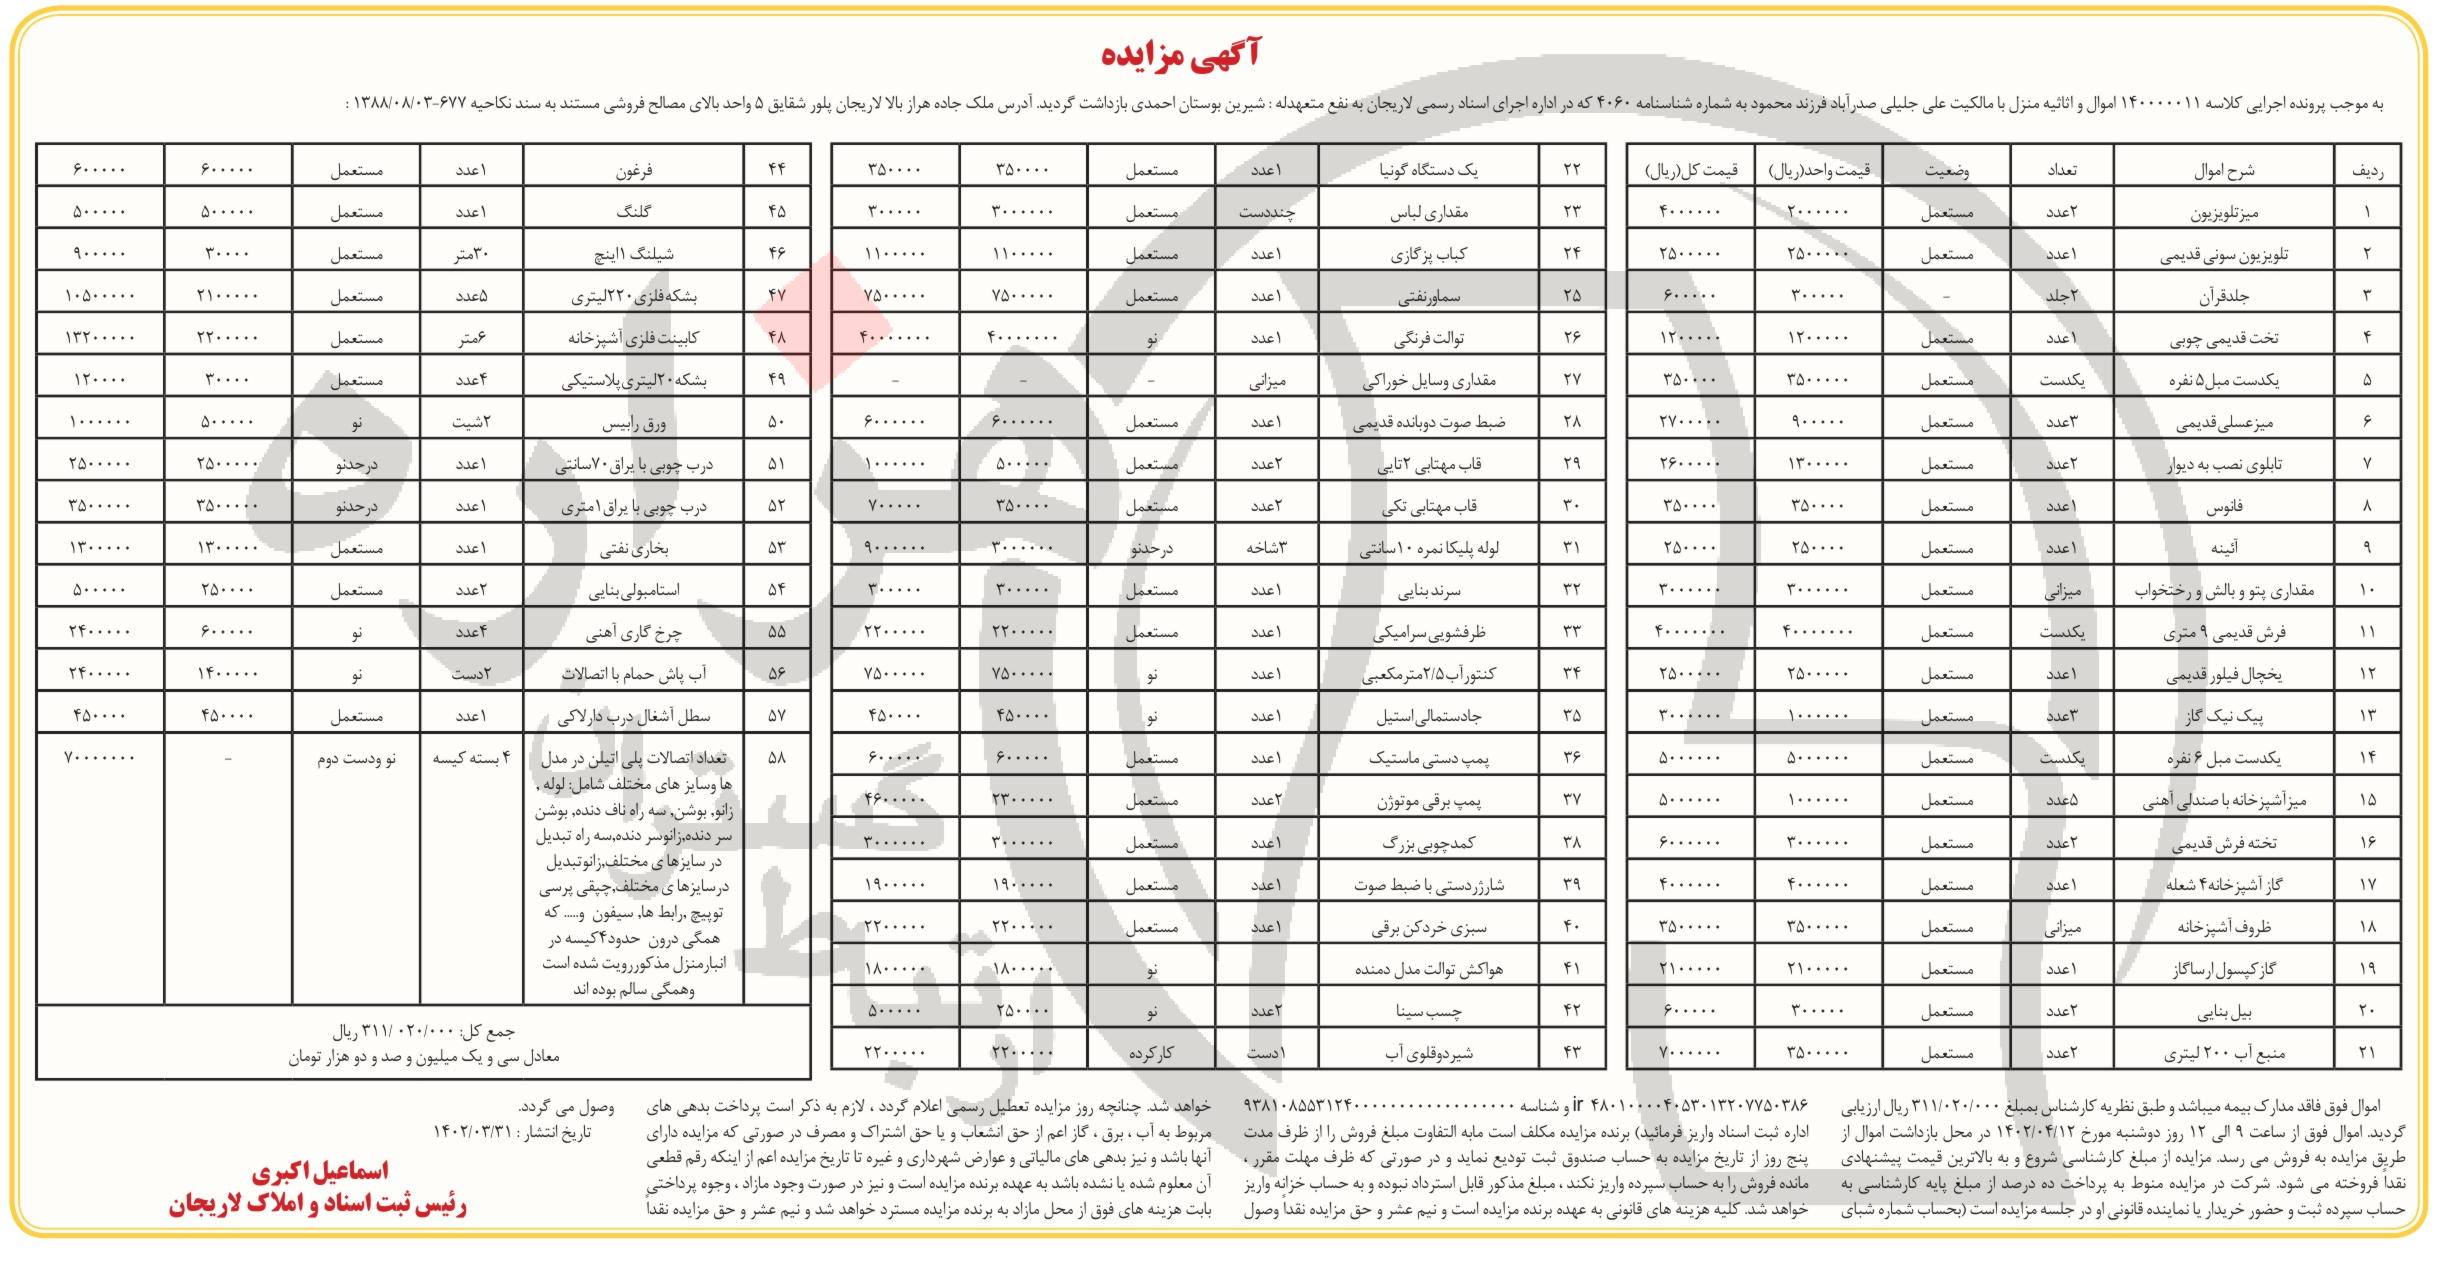 آگهی مزایده
به موجب پرونده اجرایی کلاسه ۱۴۰۰۰۰۰۱۱ اموال و اثاثیه منزل با مالکیت علی جلیلی صدرآباد فرزند محمود به شماره شناسنامه ۴۰۶۰ که در اداره اجرای اسناد رسمی لاریجان به نفع متعهدله : شیرین بوستان احمدی بازداشت گردید. آدرس ملک جاده هراز بالا لاریجان پلور شقایق ۵ واحد بالای مصالح فروشی مستند به سند نکاحیه ۶۷۷-۱۳۸۸/۰۸/۰۳ :
ردیف شرح اموال تعداد وضعیت قیمت واحد(ریال) قیمت کل(ریال)
۱ میزتلویزیون ۲عدد مستعمل ۲۰۰۰۰۰۰ ۴۰۰۰۰۰۰
۲ تلویزیون سونی قدیمی ۱عدد مستعمل ۲۵۰۰۰۰۰ ۲۵۰۰۰۰۰
۳ جلدقرآن ۲جلد - ۳۰۰۰۰۰ ۶۰۰۰۰۰
۴ تخت قدیمی چوبی ۱عدد مستعمل ۱۲۰۰۰۰۰ ۱۲۰۰۰۰۰
۵ یکدست مبل۵ نفره یکدست مستعمل ۳۵۰۰۰۰۰ ۳۵۰۰۰۰
۶ میزعسلی قدیمی ۳عدد مستعمل ۹۰۰۰۰۰ ۲۷۰۰۰۰۰
۷ تابلوی نصب به دیوار ۲عدد مستعمل ۱۳۰۰۰۰۰ ۲۶۰۰۰۰۰
۸ فانوس ۱عدد مستعمل ۳۵۰۰۰۰ ۳۵۰۰۰۰
۹ آئینه ۱عدد مستعمل ۲۵۰۰۰۰ ۲۵۰۰۰۰
۱۰ مقداری پتو و بالش و رختخواب میزانی مستعمل ۳۰۰۰۰۰۰ ۳۰۰۰۰۰۰
۱۱ فرش قدیمی ۹ متری یکدست مستعمل ۴۰۰۰۰۰۰۰ ۴۰۰۰۰۰۰۰
۱۲ یخچال فیلور قدیمی ۱عدد مستعمل ۲۵۰۰۰۰۰ ۲۵۰۰۰۰۰
۱۳ پیک نیک گاز ۳عدد مستعمل ۱۰۰۰۰۰۰ ۳۰۰۰۰۰۰
۱۴ یکدست مبل ۶ نفره یکدست مستعمل ۵۰۰۰۰۰۰ ۵۰۰۰۰۰۰
۱۵ میزآشپزخانه با صندلی آهنی ۵عدد مستعمل ۱۰۰۰۰۰۰ ۵۰۰۰۰۰۰
۱۶ تخته فرش قدیمی ۲عدد مستعمل ۳۰۰۰۰۰۰ ۶۰۰۰۰۰۰
۱۷ گاز آشپزخانه۴ شعله ۱عدد مستعمل ۴۰۰۰۰۰۰ ۴۰۰۰۰۰۰
۱۸ ظروف آشپزخانه میزانی مستعمل ۳۵۰۰۰۰۰ ۳۵۰۰۰۰۰
۱۹ گازکپسول ارساگاز ۱عدد مستعمل ۲۱۰۰۰۰۰ ۲۱۰۰۰۰۰
۲۰ بیل بنایی ۲عدد مستعمل ۳۰۰۰۰۰ ۶۰۰۰۰۰
۲۱ منبع آب ۲۰۰ لیتری ۲عدد مستعمل ۳۵۰۰۰۰۰ ۷۰۰۰۰۰۰
۲۲ یک دستگاه گونیا ۱عدد مستعمل ۳۵۰۰۰۰ ۳۵۰۰۰۰
۲۳ مقداری لباس چنددست مستعمل ۳۰۰۰۰۰۰ ۳۰۰۰۰۰
۲۴ کباب پزگازی ۱عدد مستعمل ۱۱۰۰۰۰۰ ۱۱۰۰۰۰۰
۲۵ سماورنفتی ۱عدد مستعمل ۷۵۰۰۰۰۰ ۷۵۰۰۰۰۰
۲۶ توالت فرنگی ۱عدد نو ۴۰۰۰۰۰۰۰ ۴۰۰۰۰۰۰۰
۲۷ مقداری وسایل خوراکی میزانی - - -
۲۸ ضبط صوت دوبانده قدیمی ۱عدد مستعمل ۶۰۰۰۰۰۰ ۶۰۰۰۰۰۰
۲۹ قاب مهتابی ۲تایی ۲عدد مستعمل ۵۰۰۰۰۰ ۱۰۰۰۰۰۰
۳۰ قاب مهتابی تکی ۲عدد مستعمل ۳۵۰۰۰۰ ۷۰۰۰۰۰
۳۱ لوله پلیکا نمره ۱۰سانتی ۳شاخه درحدنو ۳۰۰۰۰۰۰ ۹۰۰۰۰۰۰
۳۲ سرند بنایی ۱عدد مستعمل ۳۰۰۰۰۰ ۳۰۰۰۰۰
۳۳ ظرفشویی سرامیکی ۱عدد مستعمل ۲۲۰۰۰۰۰ ۲۲۰۰۰۰۰
۳۴ کنتورآب۲/۵مترمکعبی ۱عدد نو ۷۵۰۰۰۰۰ ۷۵۰۰۰۰۰
۳۵ جادستمالی استیل ۱عدد نو ۴۵۰۰۰۰ ۴۵۰۰۰۰
۳۶ پمپ دستی ماستیک ۱عدد مستعمل ۶۰۰۰۰۰ ۶۰۰۰۰۰
۳۷ پمپ برقی موتوژن ۲عدد مستعمل ۲۳۰۰۰۰۰ ۴۶۰۰۰۰۰
۳۸ کمدچوبی بزرگ ۱عدد مستعمل ۳۰۰۰۰۰۰ ۳۰۰۰۰۰۰
۳۹ شارژردستی با ضبط صوت ۱عدد مستعمل ۱۹۰۰۰۰۰ ۱۹۰۰۰۰۰
۴۰ سبزی خردکن برقی ۱عدد مستعمل ۲۲۰۰۰۰۰ ۲۲۰۰۰۰۰
۴۱ هواکش توالت مدل دمنده نو ۱۸۰۰۰۰۰ ۱۸۰۰۰۰۰
۴۲ چسب سینا ۲عدد نو ۲۵۰۰۰۰ ۵۰۰۰۰۰
۴۳ شیردوقلوی آب ۱دست کارکرده ۲۲۰۰۰۰۰ ۲۲۰۰۰۰۰
۴۴ فرغون ۱عدد مستعمل ۶۰۰۰۰۰ ۶۰۰۰۰۰
۴۵ گلنگ ۱عدد مستعمل ۵۰۰۰۰۰ ۵۰۰۰۰۰
۴۶ شیلنگ ۱اینچ ۳۰متر مستعمل ۳۰۰۰۰ ۹۰۰۰۰۰
۴۷ بشکه فلزی۲۲۰لیتری ۵عدد مستعمل ۲۱۰۰۰۰۰ ۱۰۵۰۰۰۰۰
۴۸ کابینت فلزی آشپزخانه ۶متر مستعمل ۲۲۰۰۰۰۰ ۱۳۲۰۰۰۰۰
۴۹ بشکه۲۰لیتری پلاستیکی ۴عدد مستعمل ۳۰۰۰۰ ۱۲۰۰۰۰
۵۰ ورق رابیس ۲شیت نو ۵۰۰۰۰۰ ۱۰۰۰۰۰۰
۵۱ درب چوبی با یراق۷۰سانتی ۱عدد درحدنو ۲۵۰۰۰۰۰ ۲۵۰۰۰۰۰
۵۲ درب چوبی با یراق۱متری ۱عدد درحدنو ۳۵۰۰۰۰۰ ۳۵۰۰۰۰۰
۵۳ بخاری نفتی ۱عدد مستعمل ۱۳۰۰۰۰۰ ۱۳۰۰۰۰۰
۵۴ استامبولی بنایی ۲عدد مستعمل ۲۵۰۰۰۰ ۵۰۰۰۰۰
۵۵ چرخ گاری آهنی ۴عدد نو ۶۰۰۰۰۰ ۲۴۰۰۰۰۰
۵۶ آب پاش حمام با اتصالات ۲دست نو ۱۴۰۰۰۰۰ ۲۴۰۰۰۰۰
۵۷ سطل آشغال درب دارلاکی ۱عدد مستعمل ۴۵۰۰۰۰ ۴۵۰۰۰۰
۵۸ تعداد اتصالات پلی اتیلن در مدل ۴ بسته کیسه نو ودست دوم - ۷۰۰۰۰۰۰۰
ها وسایز های مختلف شامل: لوله ,
زانو, بوشن, سه راه ناف دنده, بوشن
سر دنده,زانوسر دنده,سه راه تبدیل
در سایزها ی مختلف,زانوتبدیل
درسایزها ی مختلف,چپقی پرسی
توپیچ ,رابط ها, سیفون و..... که
همگی درون حدود۴کیسه در
انبارمنزل مذکوررویت شده است
وهمگی سالم بوده اند
جمع کل: ۳۱۱/ ۰۲۰/۰۰۰ ریال
معادل سی و یک میلیون و صد و دو هزار تومان
اموال فوق فاقد مدارک بیمه میباشد و طبق نظریه کارشناس بمبلغ ۳۱۱/۰۲۰/۰۰۰ ریال ارزیابی
گردید. اموال فوق از ساعت ۹ الی ۱۲ روز دوشنبه مورخ ۱۴۰۲/۰۴/۱۲ در محل بازداشت اموال از
طریق مزایده به فروش می رسد. مزایده از مبلغ کارشناسی شروع و به بالاترین قیمت پیشنهادی
نقداً فروخته می شود. شرکت در مزایده منوط به پرداخت ده درصد از مبلغ پایه کارشناسی به
حساب سپرده ثبت و حضور خریدار یا نماینده قانونی او در جلسه مزایده است (بحساب شماره شبای
ir ۴۸۰۱۰۰۰۰۴۰۵۳۰۱۳۲۰۷۷۵۰۳۸۶ و شناسه ۹۳۸۱۰۸۵۵۳۱۲۴۰۰۰۰۰۰۰۰۰۰۰۰۰۰۰۰۰۰
اداره ثبت اسناد واریز فرمائید) برنده مزایده مکلف است مابه التفاوت مبلغ فروش را از ظرف مدت
پنج روز از تاریخ مزایده به حساب صندوق ثبت تودیع نماید و در صورتی که ظرف مهلت مقرر ،
مانده فروش را به حساب سپرده واریز نکند ، مبلغ مذکور قابل استرداد نبوده و به حساب خزانه واریز
خواهد شد. کلیه هزینه های قانونی به عهده برنده مزایده است و نیم عشر و حق مزایده نقداً وصول
خواهد شد. چنانچه روز مزایده تعطیل رسمی اعلام گردد ، لازم به ذکر است پرداخت بدهی های
مربوط به آب ، برق ، گاز اعم از حق انشعاب و یا حق اشتراک و مصرف در صورتی که مزایده دارای
آنها باشد و نیز بدهی های مالیاتی و عوارض شهرداری و غیره تا تاریخ مزایده اعم از اینکه رقم قطعی
آن معلوم شده یا نشده باشد به عهده برنده مزایده است و نیز در صورت وجود مازاد ، وجوه پرداختی
بابت هزینه های فوق از محل مازاد به برنده مزایده مسترد خواهد شد و نیم عشر و حق مزایده نقداً
وصول می گردد.
تاریخ انتشار : ۱۴۰۲/۰۳/۳۱
اسماعیل اکبری
رئیس ثبت اسناد و املاک لاریجان
هزاره
گسترش
ارتباط